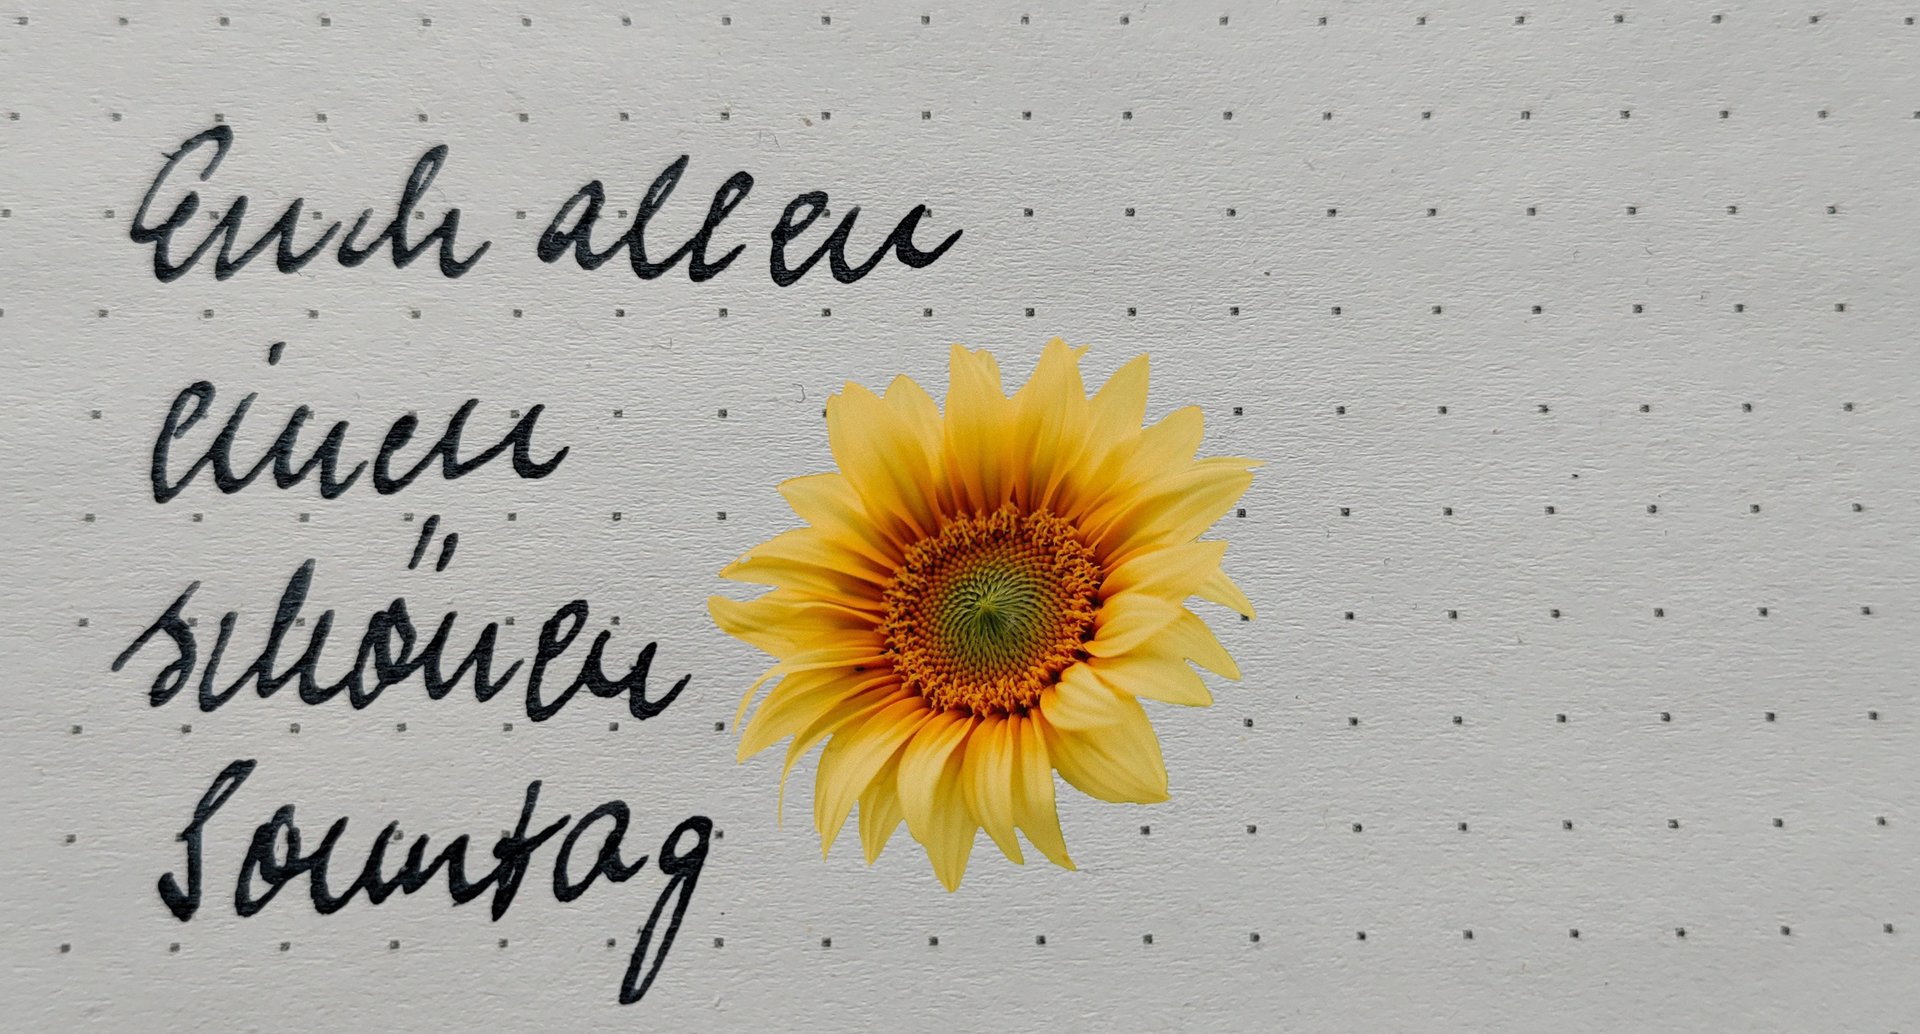 Euch allen
einen
schönen
Sonntag